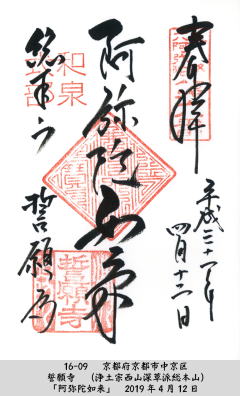 奉拝
平成三十一年
四月十二日
阿弥陀如来
和泉
式部
総本山
誓願寺
誓願寺
16-09 京都府京都市中京区
誓願寺 (浄土宗西山深草派総本山)
「阿弥陀如来」 2019年4月12日